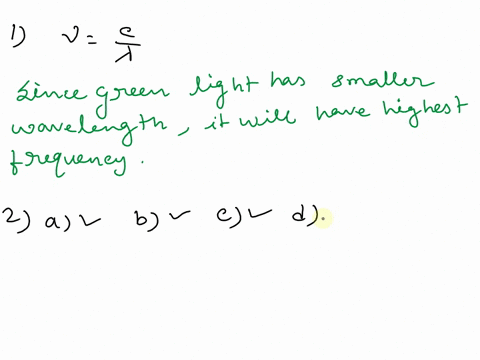 1) ν = c/λ
Since green light has smaller
wavelength, it will have highest
frequency.
2) a) ✓ b) ✓ c) ✓ d).